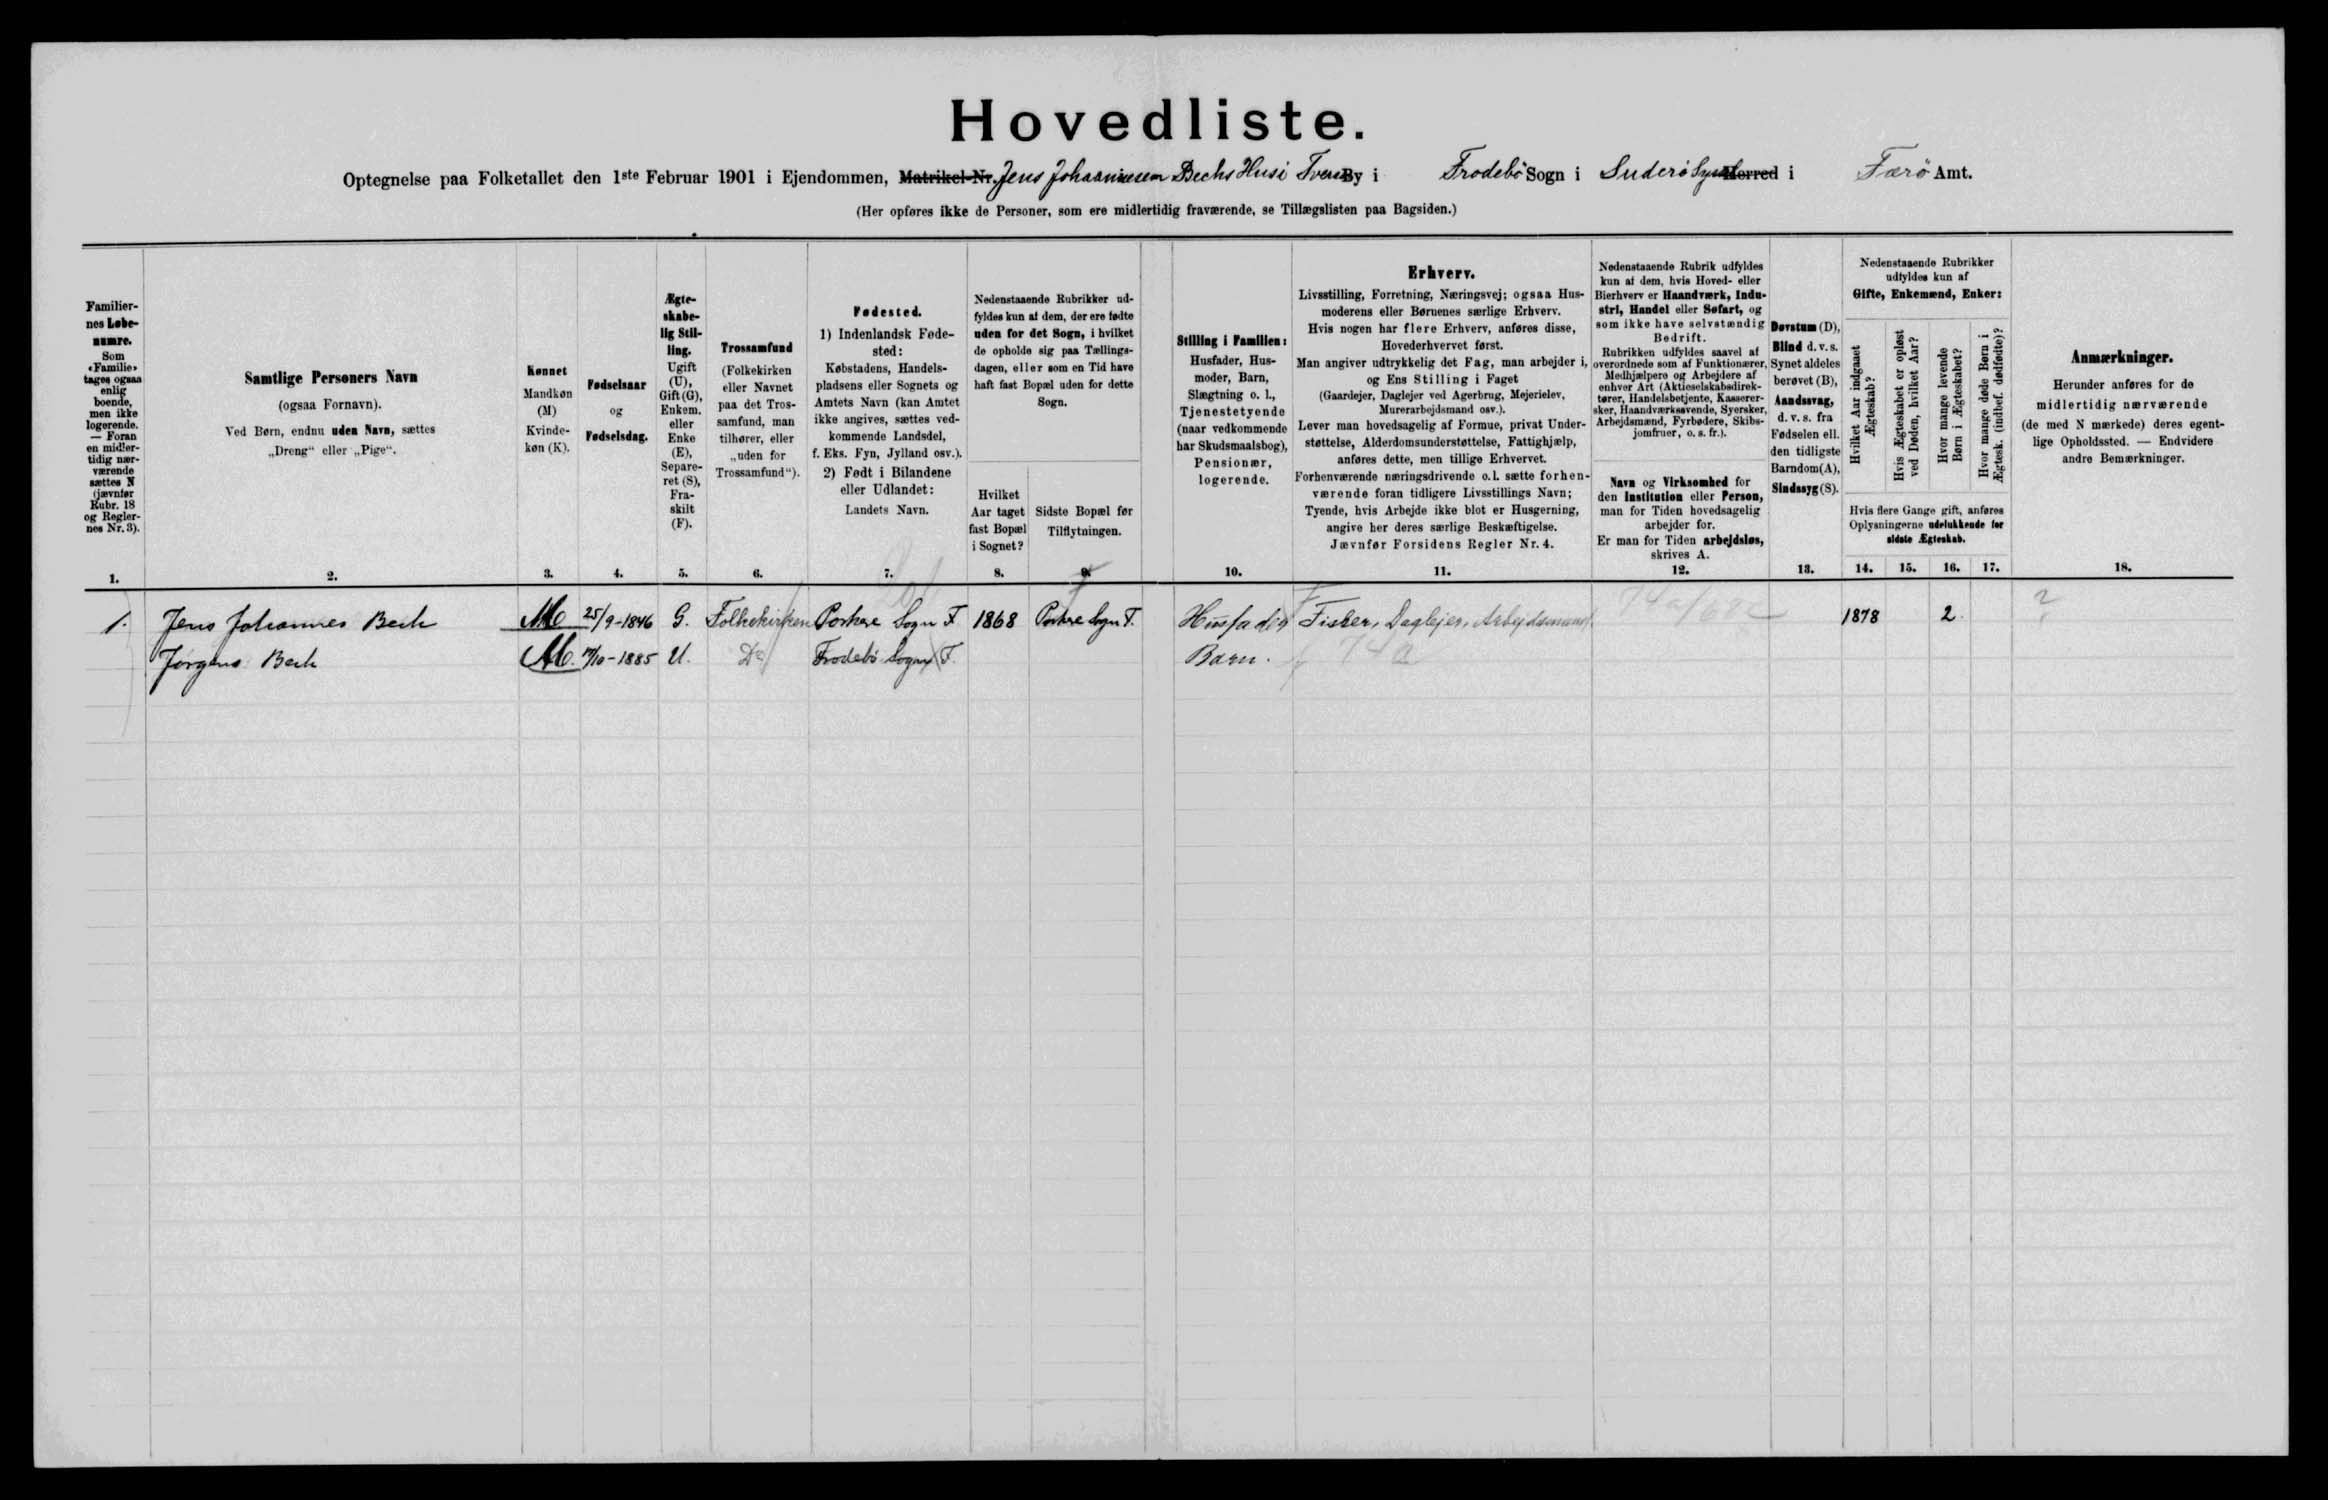 Hovedliste.
Optegnelse paa Folketallet den 1ste Februar 1901 i Ejendommen, Matrikel-Nr. Jens Johannesen Bechs Hus i Tveraa By i Frodebö Sogn i Suderö Syssel Herred i Færö Amt.
(Her opføres ikke de Personer, som ere midlertidig fraværende, se Tillægslisten paa Bagsiden.)
Familier-
nes Løbe-
numre.
Som
«Familie»
tages ogsaa
enlig
boende,
men ikke
logerende.
— Foran
en midler-
tidig nær-
værende
sættes N
(jævnfør
Rubr. 18
og Regler-
nes Nr. 3).
1.
Samtlige Personers Navn
(ogsaa Fornavn).
Ved Børn, endnu uden Navn, sættes
„Dreng“ eller „Pige“.
2.
Kønnet
Mandkøn
(M)
Kvinde-
køn (K).
3.
Fødselsaar
og
Fødselsdag.
4.
Ægte-
skabe-
lig Stil-
ling.
Ugift
(U),
Gift (G),
Enkem.
eller
Enke
(E),
Separe-
ret (S),
Fra-
skilt
(F).
5.
Trossamfund
(Folkekirken
eller Navnet
paa det Tros-
samfund, man
tilhører, eller
„uden for
Trossamfund“).
6.
Fødested.
1) Indenlandsk Føde-
sted:
Købstadens, Handels-
pladsens eller Sognets og
Amtets Navn (kan Amtet
ikke angives, sættes ved-
kommende Landsdel,
f. Eks. Fyn, Jylland osv.).
2) Født i Bilandene
eller Udlandet:
Landets Navn.
7.
Nedenstaaende Rubrikker ud-
fyldes kun af dem, der ere fødte
uden for det Sogn, i hvilket
de opholde sig paa Tællings-
dagen, eller som en Tid have
haft fast Bopæl uden for dette
Sogn.
Hvilket
Aar taget
fast Bopæl
i Sognet?
8.
Sidste Bopæl før
Tilflytningen.
9.
Stilling i Familien:
Husfader, Hus-
moder, Barn,
Slægtning o. l.,
Tjenestetyende
(naar vedkommende
har Skudsmaalsbog),
Pensionær,
logerende.
10.
Erhverv.
Livsstilling, Forretning, Næringsvej; ogsaa Hus-
moderens eller Børnenes særlige Erhverv.
Hvis nogen har flere Erhverv, anføres disse,
Hovederhvervet først.
Man angiver udtrykkelig det Fag, man arbejder i,
og Ens Stilling i Faget
(Gaardejer, Daglejer ved Agerbrug, Mejerielev,
Murerarbejdsmand osv.).
Lever man hovedsagelig af Formue, privat Under-
støttelse, Alderdomsunderstøttelse, Fattighjælp,
anføres dette, men tillige Erhvervet.
Forhenværende næringsdrivende o. l. sætte forhen-
værende foran tidligere Livsstillings Navn;
Tyende, hvis Arbejde ikke blot er Husgerning,
angive her deres særlige Beskæftigelse.
Jævnfør Forsidens Regler Nr. 4.
11.
Nedenstaaende Rubrik udfyldes
kun af dem, hvis Hoved- eller
Bierhverv er Haandværk, Indu-
stri, Handel eller Søfart, og
som ikke have selvstændig
Bedrift.
Rubrikken udfyldes saavel af
overordnede som af Funktionærer,
Medhjælpere og Arbejdere af
enhver Art (Aktieselskabsdirek-
tører, Handelsbetjente, Kasserer-
sker, Haandværkssvende, Syersker,
Arbejdsmænd, Fyrbødere, Skibs-
jomfruer, o. s. fr.).
Navn og Virksomhed for
den Institution eller Person,
man for Tiden hovedsagelig
arbejder for.
Er man for Tiden arbejdsløs,
skrives A.
12.
Døvstum (D),
Blind d. v. s.
Synet aldeles
berøvet (B),
Aandssvag,
d. v. s. fra
Fødselen ell.
den tidligste
Barndom (A),
Sindssyg (S).
13.
Nedenstaaende Rubrikker
udfyldes kun af
Gifte, Enkemænd, Enker:
Hvilket Aar indgaaet
Ægteskab?
Hvis Ægteskabet er opløst
ved Døden, hvilket Aar?
Hvor mange levende
Børn i Ægteskabet?
Hvor mange døde Børn i
Ægtesk. (indbef. dødfødte)?
Hvis flere Gange gift, anføres
Oplysningerne udelukkende for
sidste Ægteskab.
14. 15. 16. 17.
Anmærkninger.
Herunder anføres for de
midlertidig nærværende
(de med N mærkede) deres egent-
lige Opholdssted. — Endvidere
andre Bemærkninger.
18.
1. Jens Johannes Bech M 25/9-1846 G. Folkekirken Porkere Sogn F 1868 Porkere Sogn F. Husfader Fisker, Daglejer, Arbejdsmand 74a/682 1878 2. ?
Jørgens Bech M. /10-1885 U. Do Frodebö Sogn F. Barn. 74a